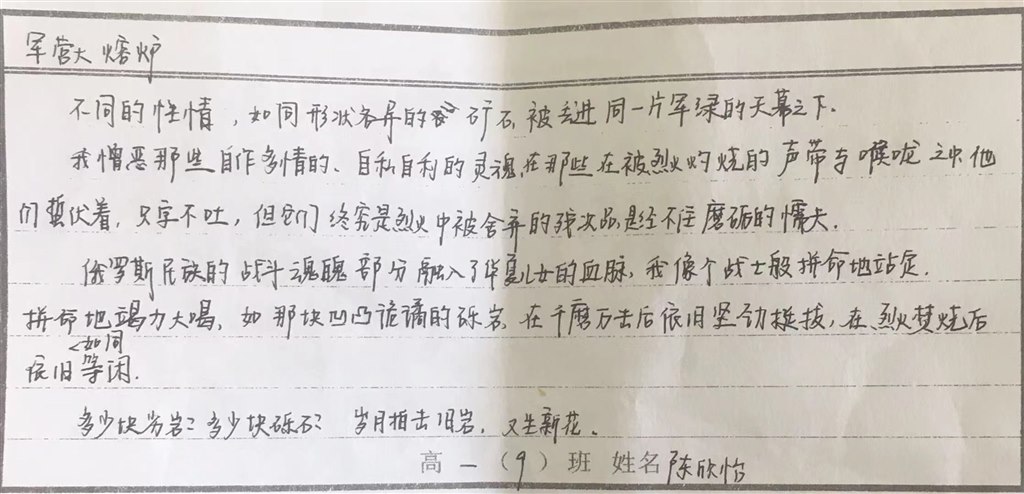 军营大熔炉
不同的性情，如同形状各异的矿石被丢进同一片军绿的天幕之下.
我憎恶那些自作多情的、自私自利的灵魂,在那些在被烈火灼烧的声带与喉咙之中他
们蛰伏着,只字不吐,但它们终究是烈火中被舍弃的残次品,是经不住磨砺的懦夫.
俄罗斯民族的战斗魂魄部分融入了华夏儿女的血脉,我像个战士般拼命地站定.
拼命地竭力大喝,如那块凹凸诡谲的砾岩,在千磨万击后依旧坚劲挺拔,在烈火焚烧后
依旧如同等闲.
多少块岩?多少块砾石? 岁月拍击旧岩,又生新花.
高一(9)班 姓名 陈欣怡